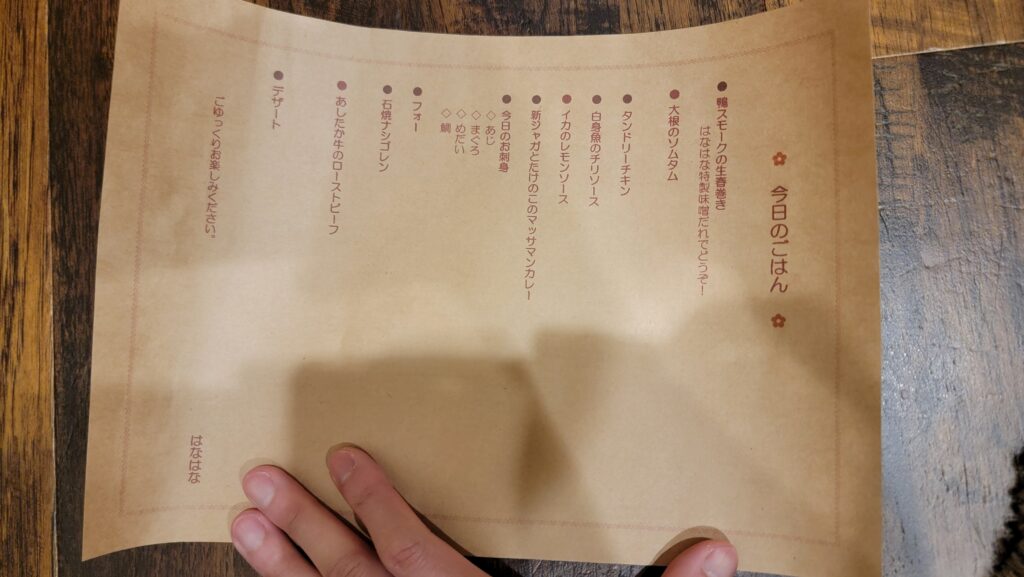 ✿ 今日のごはん ✿
●鴨スモークの生春巻き
はなはな特製味噌だれでどうぞ！
●大根のソムタム
●タンドリーチキン
●白身魚のチリソース
●イカのレモンソース
●新ジャガとたけのこのマッサマンカレー
●今日のお刺身
◇あじ
◇まぐろ
◇めだい
◇鯛
●フォー
●石焼ナシゴレン
●あしたか牛のローストビーフ
●デザート
ごゆっくりお楽しみください。
はなはな